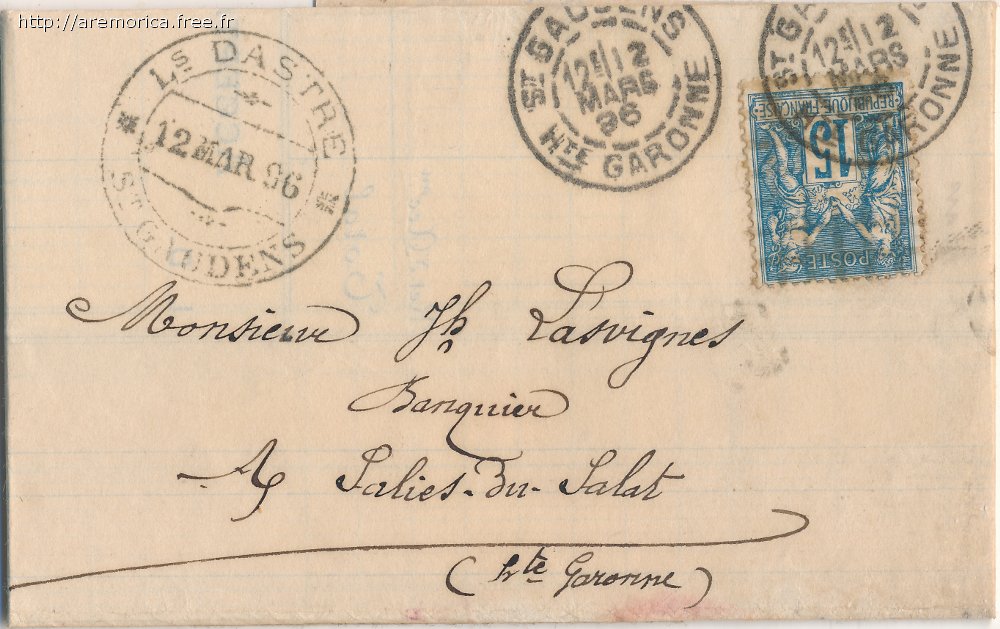 http://aremorica.free.fr
Ls DASTRE
12 MAR 96
ST GAUDENS
ST GAUDENS
12E/12
MARS
96
HTE GARONNE
ST GA
12E/12
MARS
GARONNE
REPUBLIQUE FRANCAISE
15
POSTE
Monsieur Jh Lasvignes
Banquier
A Salies-du-Salat
(hte Garonne)